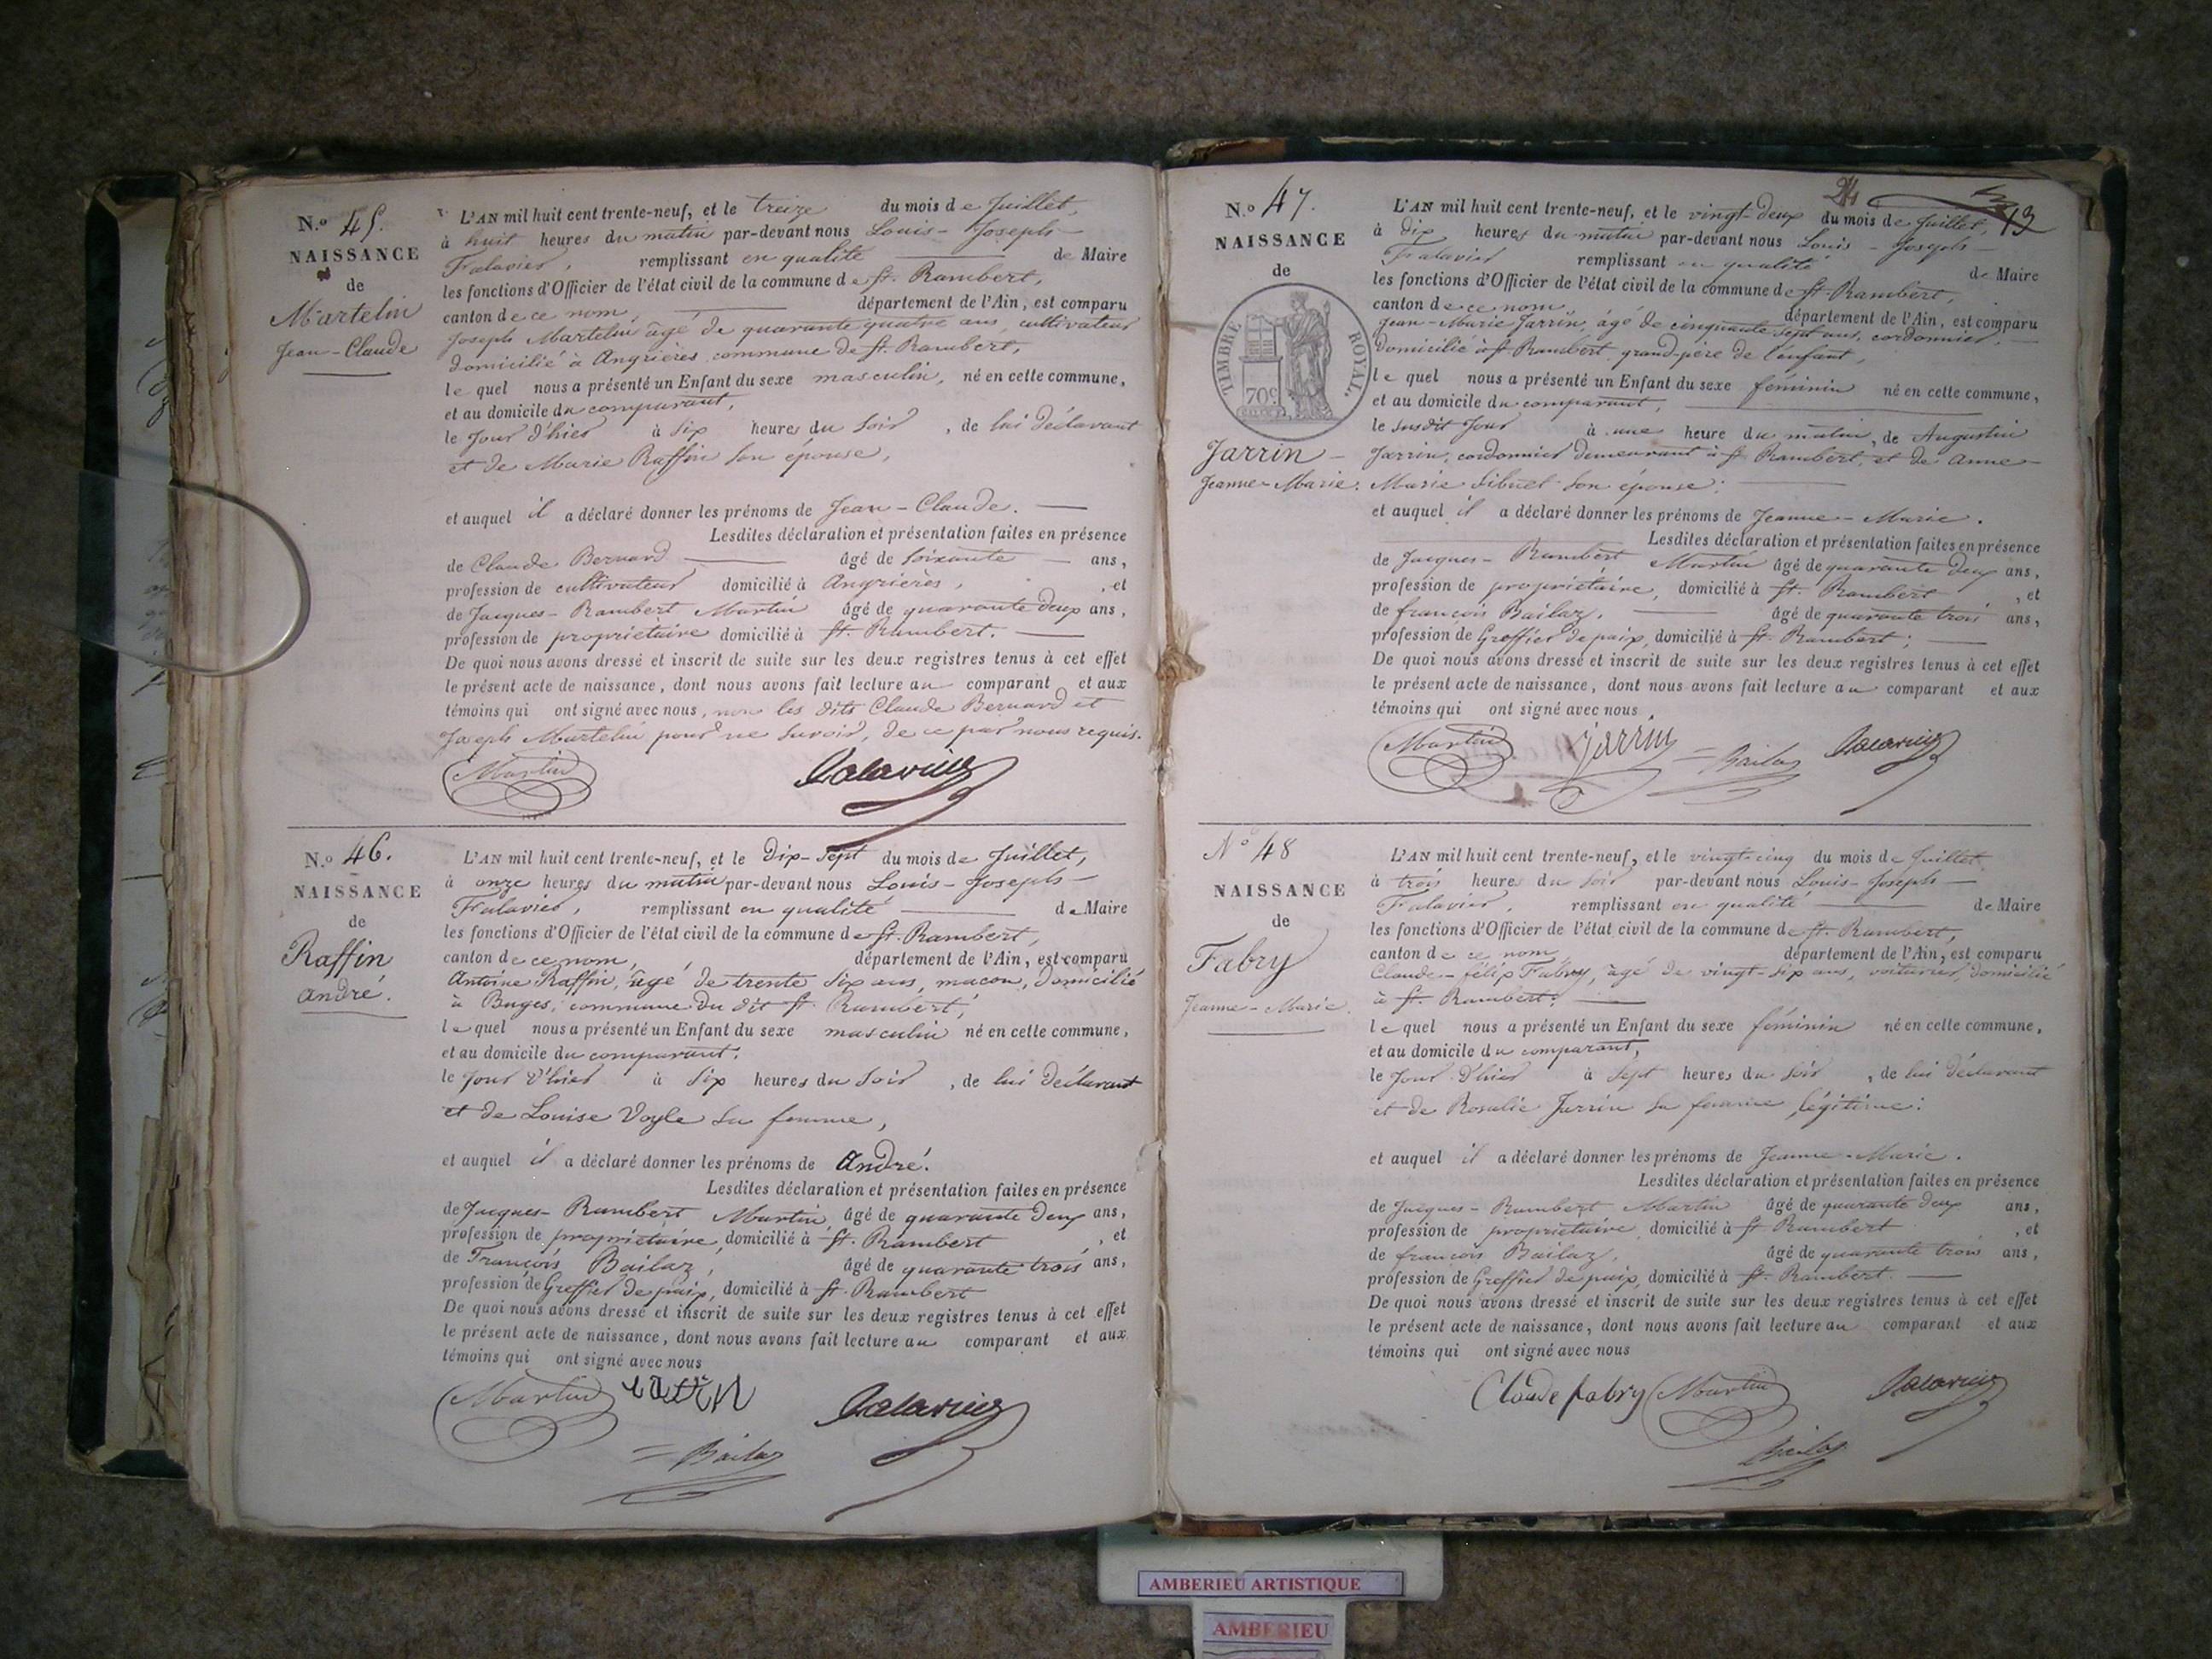 N.o 45.
NAISSANCE
de
Martelin
Jean-Claude
L'AN mil huit cent trente-neuf, et le treize du mois de Juillet,
à huit heures du matin par-devant nous Louis-Joseph
Falavier, remplissant en qualité de Maire
les fonctions d'Officier de l'état civil de la commune de St. Rambert,
canton de ce nom, département de l'Ain, est comparu
Joseph Martelin âgé de quarante quatre ans, cultivateur
domicilié à Angrières commune de St. Rambert,
le quel nous a présenté un Enfant du sexe masculin, né en cette commune,
et au domicile du comparant,
le jour d'hier à six heures du soir, de lui déclarant
et de Marie Raffin son épouse,
et auquel il a déclaré donner les prénoms de Jean-Claude.
Lesdites déclaration et présentation faites en présence
de Claude Bernard âgé de soixante ans,
profession de cultivateur domicilié à Angrières, , et
de Jacques-Rambert Martin âgé de quarante deux ans,
profession de propriétaire domicilié à St. Rambert.
De quoi nous avons dressé et inscrit de suite sur les deux registres tenus à cet effet
le présent acte de naissance, dont nous avons fait lecture au comparant et aux
témoins qui ont signé avec nous, non les dits Claude Bernard et
Joseph Martelin pour ne savoir, de ce par nous requis.
Martin Falavier
N.o 46.
NAISSANCE
de
Raffin
André.
L'AN mil huit cent trente-neuf, et le Dix-Sept du mois de Juillet,
à onze heures du matin par-devant nous Louis-Joseph
Falavier, remplissant en qualité de Maire
les fonctions d'Officier de l'état civil de la commune de St. Rambert,
canton de ce nom, département de l'Ain, est comparu
Antoine Raffin, âgé de trente six ans, maçon, domicilié
à Buges, commune du dit St. Rambert,
le quel nous a présenté un Enfant du sexe masculin né en cette commune,
et au domicile du comparant.
le jour d'hier à six heures du soir, de lui déclarant
et de Louise Vogle sa femme,
et auquel il a déclaré donner les prénoms de André.
Lesdites déclaration et présentation faites en présence
de Jacques-Rambert Martin, âgé de quarante deux ans,
profession de propriétaire, domicilié à St. Rambert, et
de François Bailaz, âgé de quarante trois ans,
profession de Greffier de paix, domicilié à St. Rambert
De quoi nous avons dressé et inscrit de suite sur les deux registres tenus à cet effet
le présent acte de naissance, dont nous avons fait lecture au comparant et aux
témoins qui ont signé avec nous
Martin Falavier
Bailaz
24
13
N.o 47.
NAISSANCE
de
TIMBRE ROYAL.
70c
Jarrin
Jeanne-Marie.
L'AN mil huit cent trente-neuf, et le vingt-deux du mois de Juillet,
à dix heures du matin par-devant nous Louis-Joseph
Falavier remplissant en qualité de Maire
les fonctions d'Officier de l'état civil de la commune de St. Rambert,
canton de ce nom, département de l'Ain, est comparu
Jean-Marie Jarrin, âgé de cinquante sept ans, cordonnier,
domicilié à St. Rambert, grand-père de l'enfant,
le quel nous a présenté un Enfant du sexe féminin né en cette commune,
et au domicile du comparant,
le susdit jour à une heure du matin, de Augustin
Jarrin, cordonnier demeurant à St. Rambert, et de Anne-
Marie Sibuet son épouse:
et auquel il a déclaré donner les prénoms de Jeanne-Marie.
Lesdites déclaration et présentation faites en présence
de Jacques-Rambert Martin âgé de quarante deux ans,
profession de propriétaire, domicilié à St. Rambert, et
de françois Bailaz, âgé de quarante trois ans,
profession de Greffier de paix, domicilié à St. Rambert;
De quoi nous avons dressé et inscrit de suite sur les deux registres tenus à cet effet
le présent acte de naissance, dont nous avons fait lecture au comparant et aux
témoins qui ont signé avec nous,
Martin Jarrin Bailaz Falavier
N.o 48
NAISSANCE
de
Fabry
Jeanne-Marie.
L'AN mil huit cent trente-neuf, et le vingt-cinq du mois de Juillet
à trois heures du soir par-devant nous Louis-Joseph
Falavier, remplissant en qualité de Maire
les fonctions d'Officier de l'état civil de la commune de St. Rambert,
canton de ce nom, département de l'Ain, est comparu
Claude-félix Fabry, âgé de vingt-six ans, voiturier, domicilié
à St. Rambert;
le quel nous a présenté un Enfant du sexe féminin né en cette commune,
et au domicile du comparant,
le jour d'hier à sept heures du soir, de lui déclarant
et de Rosalie Jarrin sa femme légitime:
et auquel il a déclaré donner les prénoms de Jeanne-Marie.
Lesdites déclaration et présentation faites en présence
de Jacques-Rambert Martin âgé de quarante deux ans,
profession de propriétaire, domicilié à St. Rambert, et
de françois Bailaz, âgé de quarante trois ans,
profession de Greffier de paix, domicilié à St. Rambert.
De quoi nous avons dressé et inscrit de suite sur les deux registres tenus à cet effet
le présent acte de naissance, dont nous avons fait lecture au comparant et aux
témoins qui ont signé avec nous
Claude fabry Martin Falavier
Bailaz
AMBERIEU ARTISTIQUE
AMBERIEU